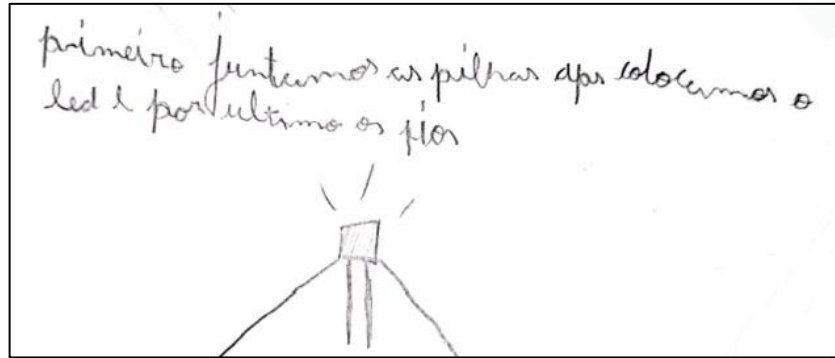 primeiro juntamos as pilhas dps colocamos o
led e por ultimo os fios